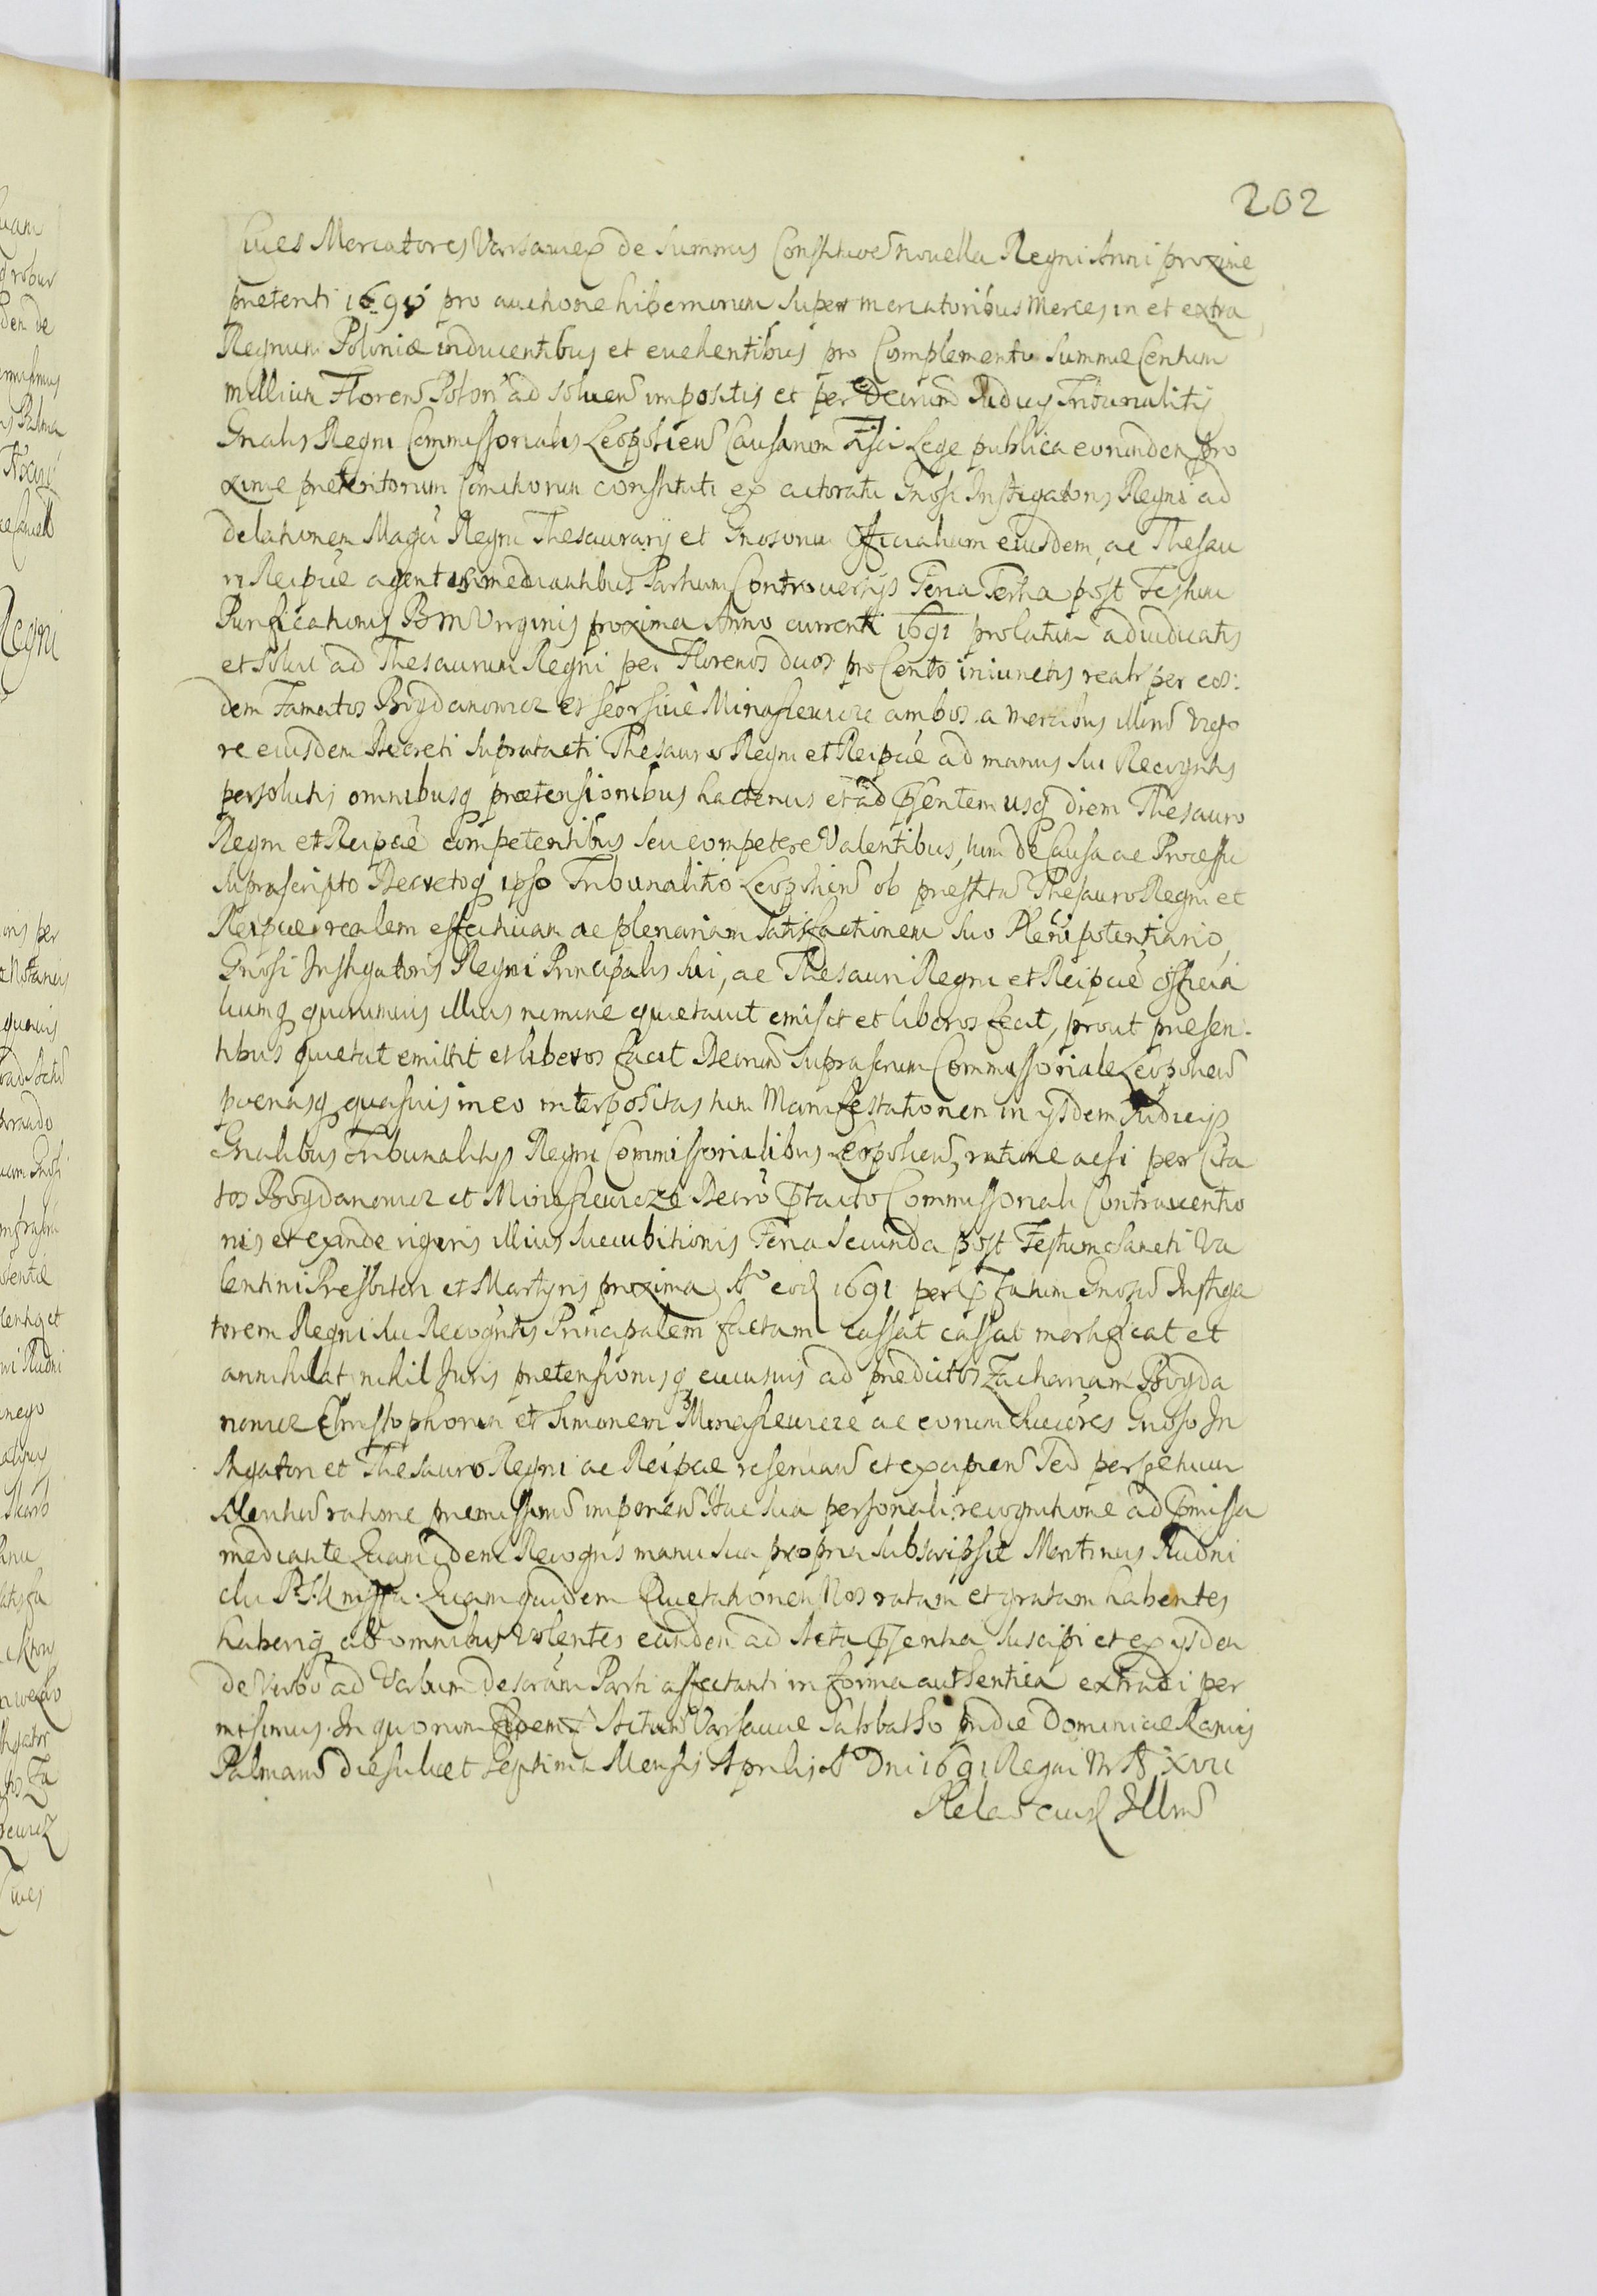 202
Cives Mercatores Varsavien de Summis Constitutione novella Regni Anni proxime
preteriti 1690 pro auctione hibernorum super mercatoribus Merces in et extra
Regnum Poloniæ inducentibus et evehentibus pro Complemento Summæ Centum
millium Floren Polon ad solven impositis et per Decretum Judicij Tribunalitij
Gnalis Regni Commissorialis Leopolien Causarum Fisci Lege publica eorundem pro
xime preteritorum Comitiorum constituti ex actoratu Gnosi Instigatoris Regni ad
delationem Magci Regni Thesaurarij et Gnosorum Officialium eiusdem ac Thesau
ri Reipcæ agentis mediantibus Partium Controversijs Feria Tertia post Festum
Purificationis B M Virginis proxima Anno currenti 1691 prolatum adiudicatis
et solvi ad Thesaurum Regni per Florenos duos pro Cento iniunctis realr per eos:
dem Famatos Bogdanowicz et seorsivè Minasiewicze ambos a mercibus illorum vigo
re eiusdem Decreti supratacti Thesauro Regni et Reipcæ ad manus sui Recogntis
persolutis omnibusq prætensionibus hactenus et ad psentem usq diem Thesauro
Regni et Reipcæ competentibus seu competere Valentibus, tum de Causa ac Processu
suprascripto Decretoq ipso Tribunalitio Leopolien ob prestitam Thesauro Regni et
Reipcæ realem effectivam ac plenariam satisfactionem suo Plenipotentiario
Gnosi Instigatoris Regni Principalis sui, ac Thesauri Regni et Reipcæ officia
liumq quorumvis illius nomine quietavit emisit et liberos fecit, prout presen-
tibus quietat emittit et liberos facit Decretum suprascriptum Commissoriale Leopolien
pœnasq quasvis in eo interpositas tum Manifestationem in ijsdem Judicijs
Gnalibus Tribunalitijs Regni Commissorialibus Leopolien, ratione acsi per Cita
tos Bogdanowicz et Minasiewicze Decreto ptacto Commissoriali Contraventio
nis et exinde rigoris illius succubitionis Feria Secunda post Festum Sancti Va
lentini Presbiteri et Martyris proxima Ao eod 1691 per pfatum Gnosum Instiga
torem Regni sui Recogntis Principalem factam cassat cassat mortificat et
annihilat nihil Juris pretensionisq cuiusvis ad predictos Zachariam Bogda
nowicz Christophorum et Simonem Minasiewicze ac eorum Succres Gnoso In
stigatori et Thesauro Regni ac Reipcæ reservan et excipien Sed perpetuum
silentium ratione premissorum imponen Hac sua personali recognitione ad pmissa
mediante Quam idem Recogns manu sua propria subscripsit Martinus Rudni
cki P. Quam quidem Quietationem Nos ratam et gratam habentes
haberiq ab omnibus volentes eandem ad Acta psentia suscipi et ex ijsdem
de Verbo ad Verbum descriptam Parti affectanti in forma authentica extradi per
misimus. In quorum Fidem & Actum Varsaviæ Sabbatho pridie Dominicæ Ramis
Palmarum die scilicet septima Mensis Aprilis Ao Dni 1691 Regni Nri Ao XVII
Relao eiusd Illmi